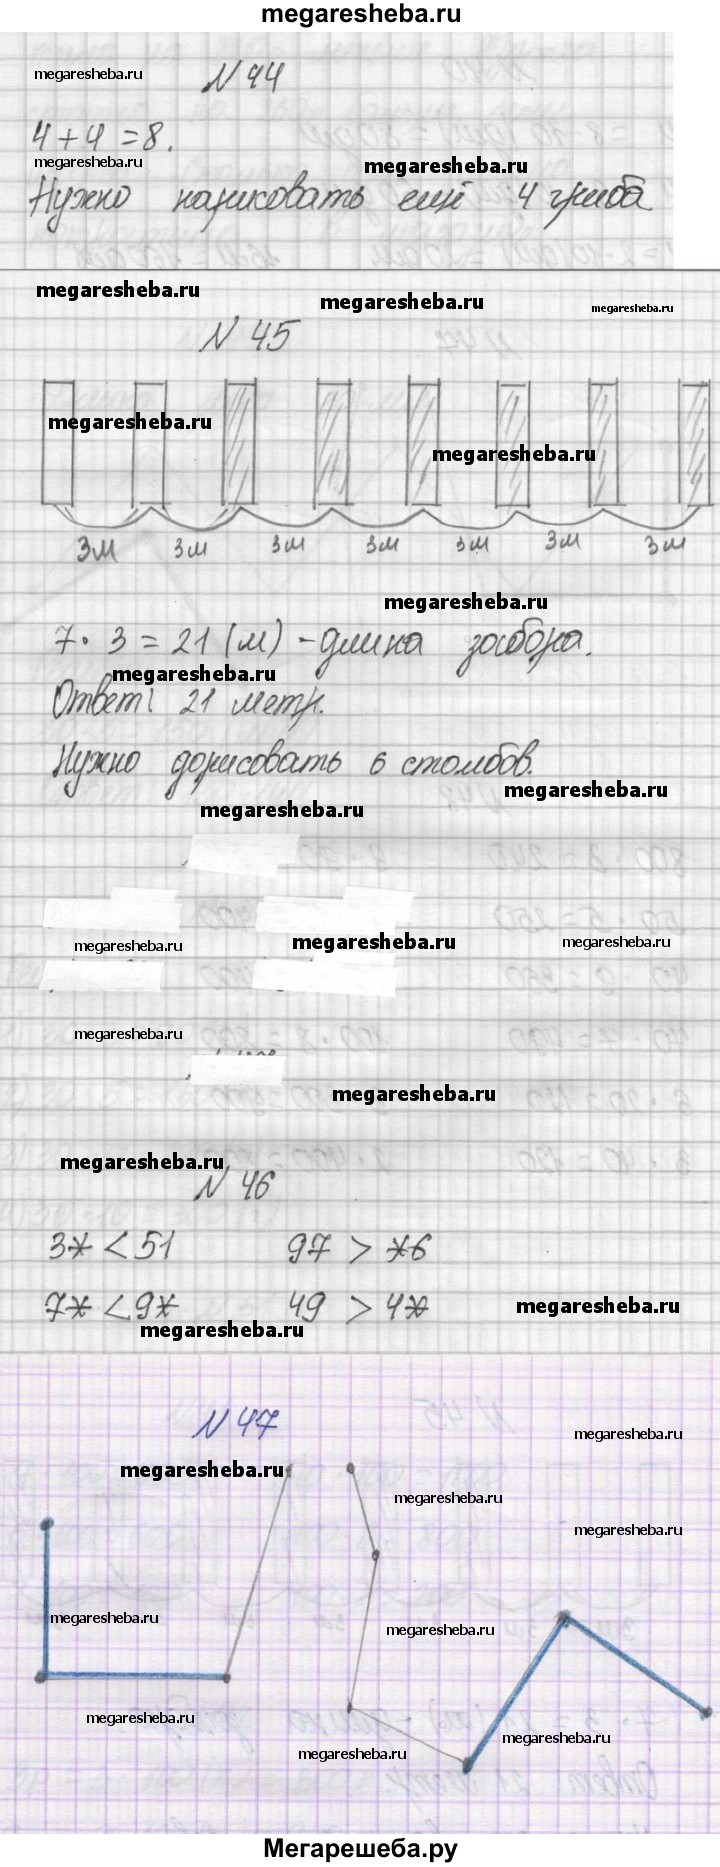 megaresheba.ru
megaresheba.ru
N 44
4 + 4 = 8.
megaresheba.ru
megaresheba.ru
Нужно нарисовать ещё 4 гриба
megaresheba.ru
megaresheba.ru
megaresheba.ru
N 45
megaresheba.ru
megaresheba.ru
3м 3м 3м 3м 3м 3м 3м
megaresheba.ru
7 · 3 = 21 (м) - длина забора.
megaresheba.ru
Ответ: 21 метр.
Нужно дорисовать 6 столбов.
megaresheba.ru
megaresheba.ru
megaresheba.ru
megaresheba.ru
megaresheba.ru
megaresheba.ru
megaresheba.ru
megaresheba.ru
N 46
3* < 51 97 > *6
7* < 9* 49 > 4*
megaresheba.ru
megaresheba.ru
N 47
megaresheba.ru
megaresheba.ru
megaresheba.ru
megaresheba.ru
megaresheba.ru
megaresheba.ru
megaresheba.ru
megaresheba.ru
megaresheba.ru
Мегарешеба.ру